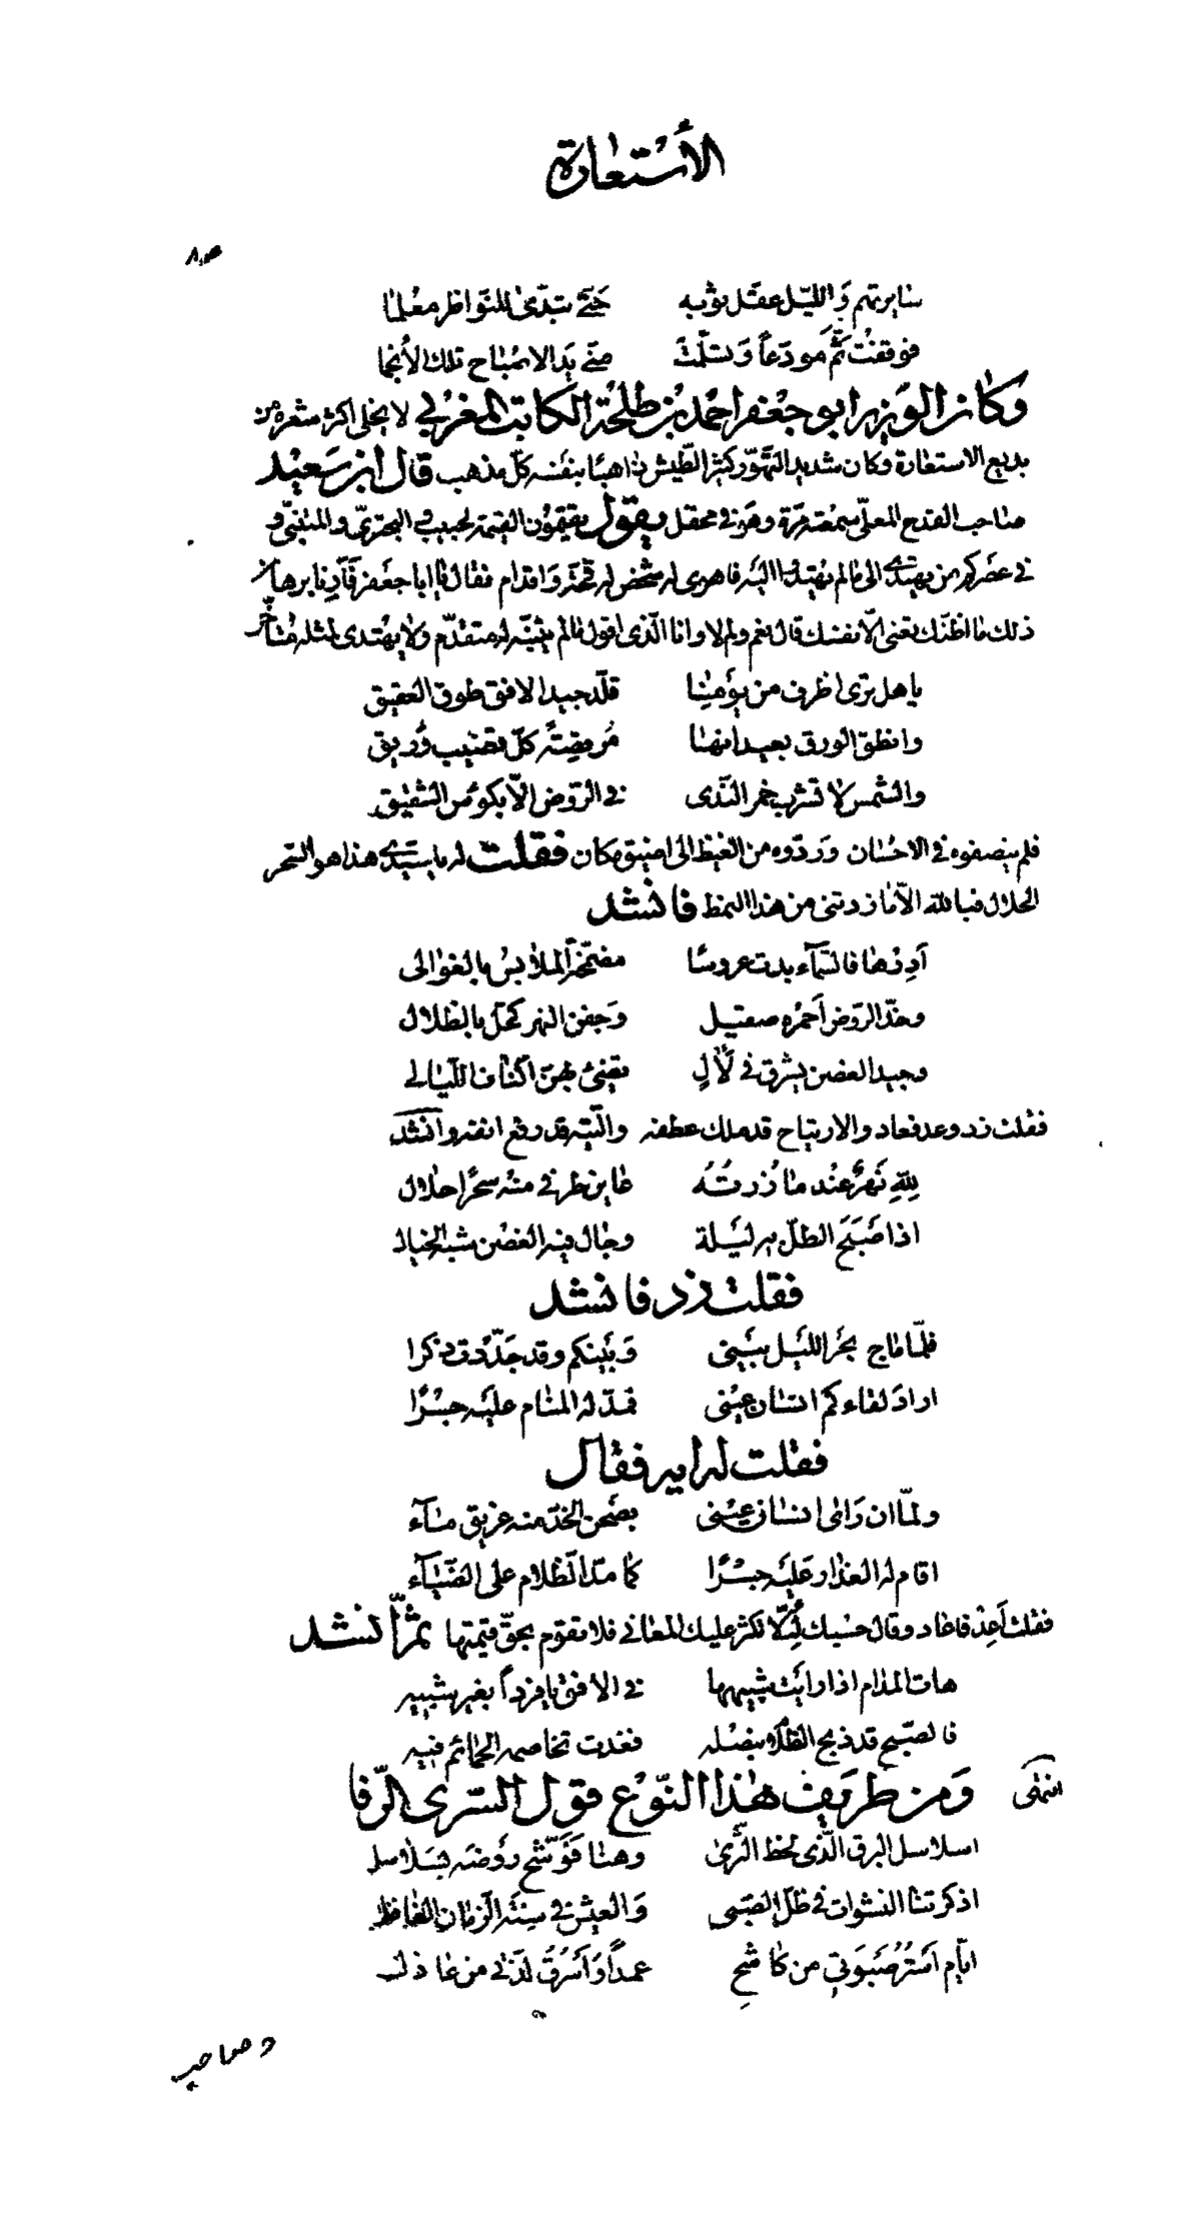 الأستعارة
سايرتهم والليل عقل ثوبه حتى تبدى للنواظر معلما
فوقفت ثم مودعاً وتسلمت منى يد الاصباح تلك الأنجما
وكان الوزير ابو جعفر احمد بن طلحة الكاتب المغربي لا يخلى اكثر شعره من
بديع الاستعارة وكان شديد التهور كثير الطيش ذاهبا بنفسه كل مذهب قال ابن سعيد
صاحب القدح المعلى سمعته مرة وهو في محفل يقول يقيمون القيمة لحبيب والبحترى والمتنبى و
في عصركم من يهتدى الى ما لم يهتدوا اليه فاهوى له شخص له قحة واقدام فقال يا ابا جعفر فارنا برهان
ذلك ما اظنك تعنى الا نفسك قال نعم ولم لا وانا الذى اقول ما لم يتنبه له متقدم ولا يهتدى لمثله متأخر
يا هل ترى اظرف من يومنا قلد جيد الافق طوق العقيق
وانطق الورق بعيدانها مرقصة كل قضيب وريق
والشمس لا تشرب خمر الندى في الروض الا بكؤس الشقيق
فلم ينصفوه في الاحسان وردوه من الغيظ الى اضيق مكان فقلت له يا سيدى هذا هو السحر
الحلال فبالله الا ما زدتنى من هذا النمط فانشد
ادرها فالسماء بدت عروسا مضمخة الملابس بالغوالى
وخد الروض احمره صقيل وجفن النهر كحل بالظلال
وجيد الغصن يشرق في لآل تضئ بهن اكناف الليالى
فقلت زد وعد فعاد والارتياح قد ملك عطفه والتيه قد رفع انفه وانشد
لله نهر عند ما زرته عاين طرفى منه سحرا حلال
اذا صبح الطل به ليلة وجال فيه الغصن شبه الخيال
فقلت زد فانشد
فلما ماج بحر الليل بينى وبينكم وقد جددت ذكرا
اراد لقاءكم انسان عينى فمد له المنام عليه جسرا
فقلت له ايه فقال
ولما ان راى انسان عينى بصحن الخد منه غريق ماء
اقام له العذار عليه جسرا كما مد الظلام على الضياء
فقلت اعد فاعاد وقال حسبك لئلا تكثر عليك المعانى فلا تقوم بحق قيمتها ثم انشد
هات المدام اذا رايت شبيهها في الافق يا فرداً بغير شبيه
فالصبح قد ذبح الظلام بنصله فغدت تخاصمه الحمائم فيه
انتهى ومن ظريف هذا النوع قول السرى الرفا
اسلاسل البرق الذى لحظ الثرى وهنا فوشح روضه بسلاسل
اذكرتنا النشوات في ظل الصبى والعيش في سنة الزمان الغافل
ايام استر صبوتى من كاشح عمداً واسرق لذتى من عاذل
وصاحب